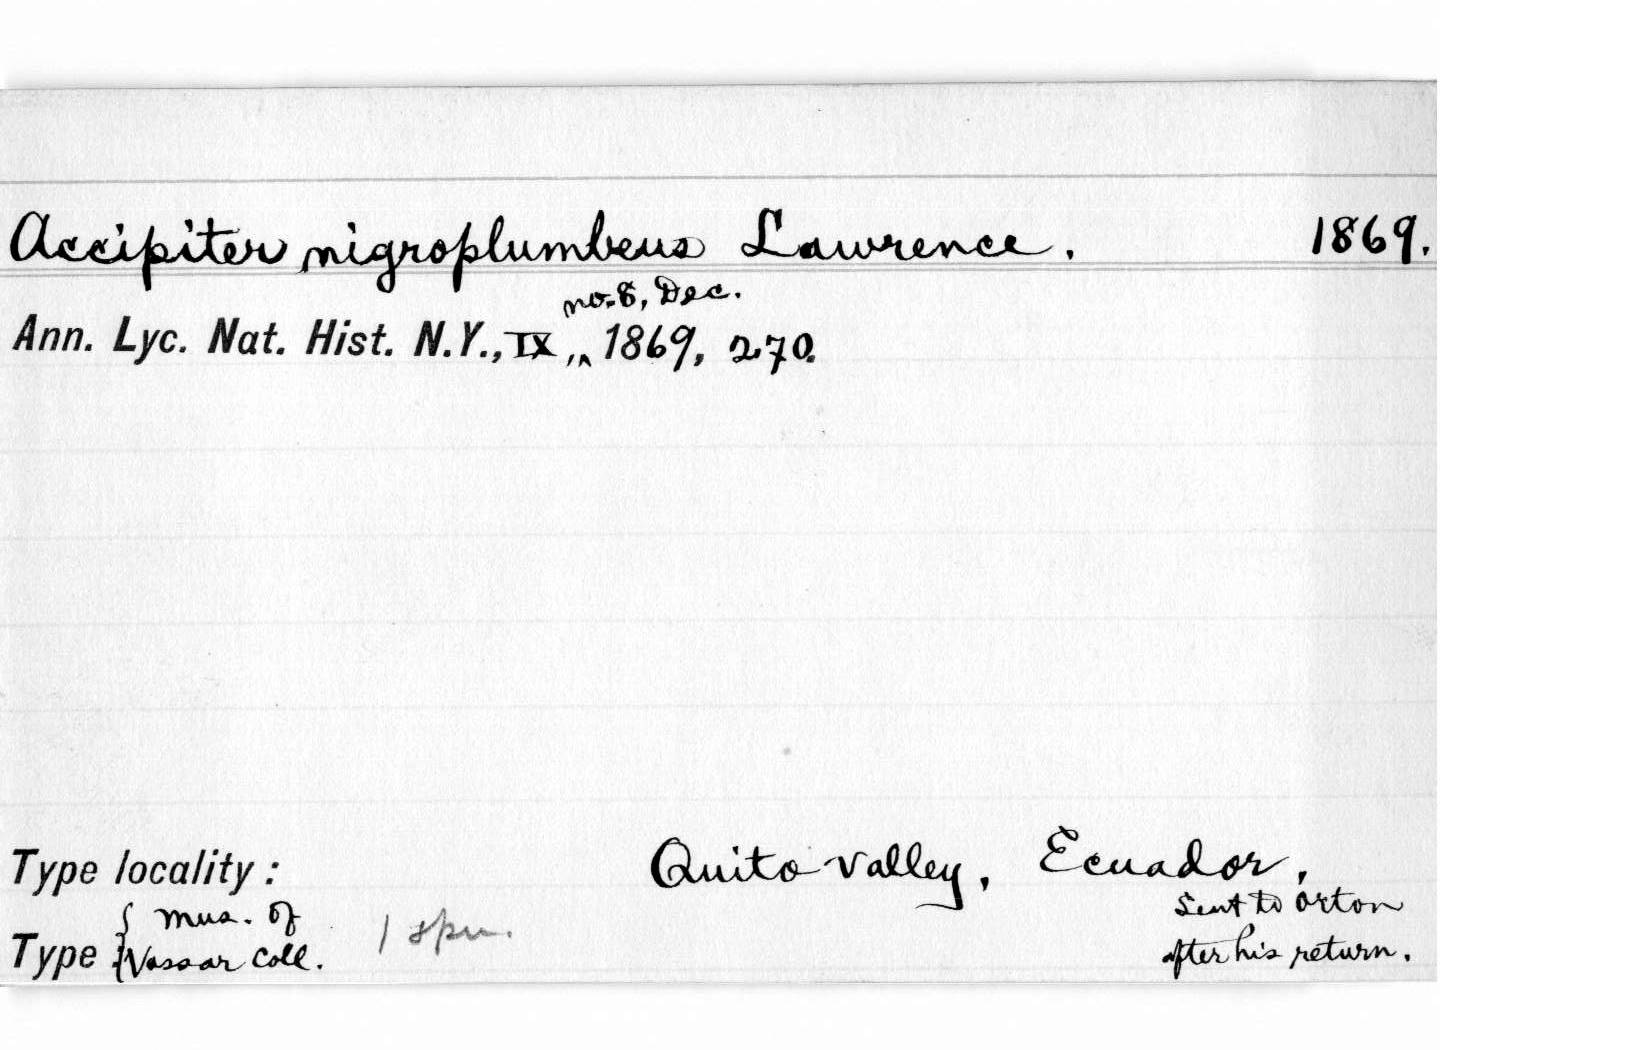 Accipiter nigroplumbeus Lawrence. 1869.
no. 8, Dec.
Ann. Lyc. Nat. Hist. N.Y., IX ,^ 1869, 270.
Type locality : Quito valley, Ecuador,
{ Mus. of 1 spm. Sent to Orton
Type {Vassar Coll. after his return.